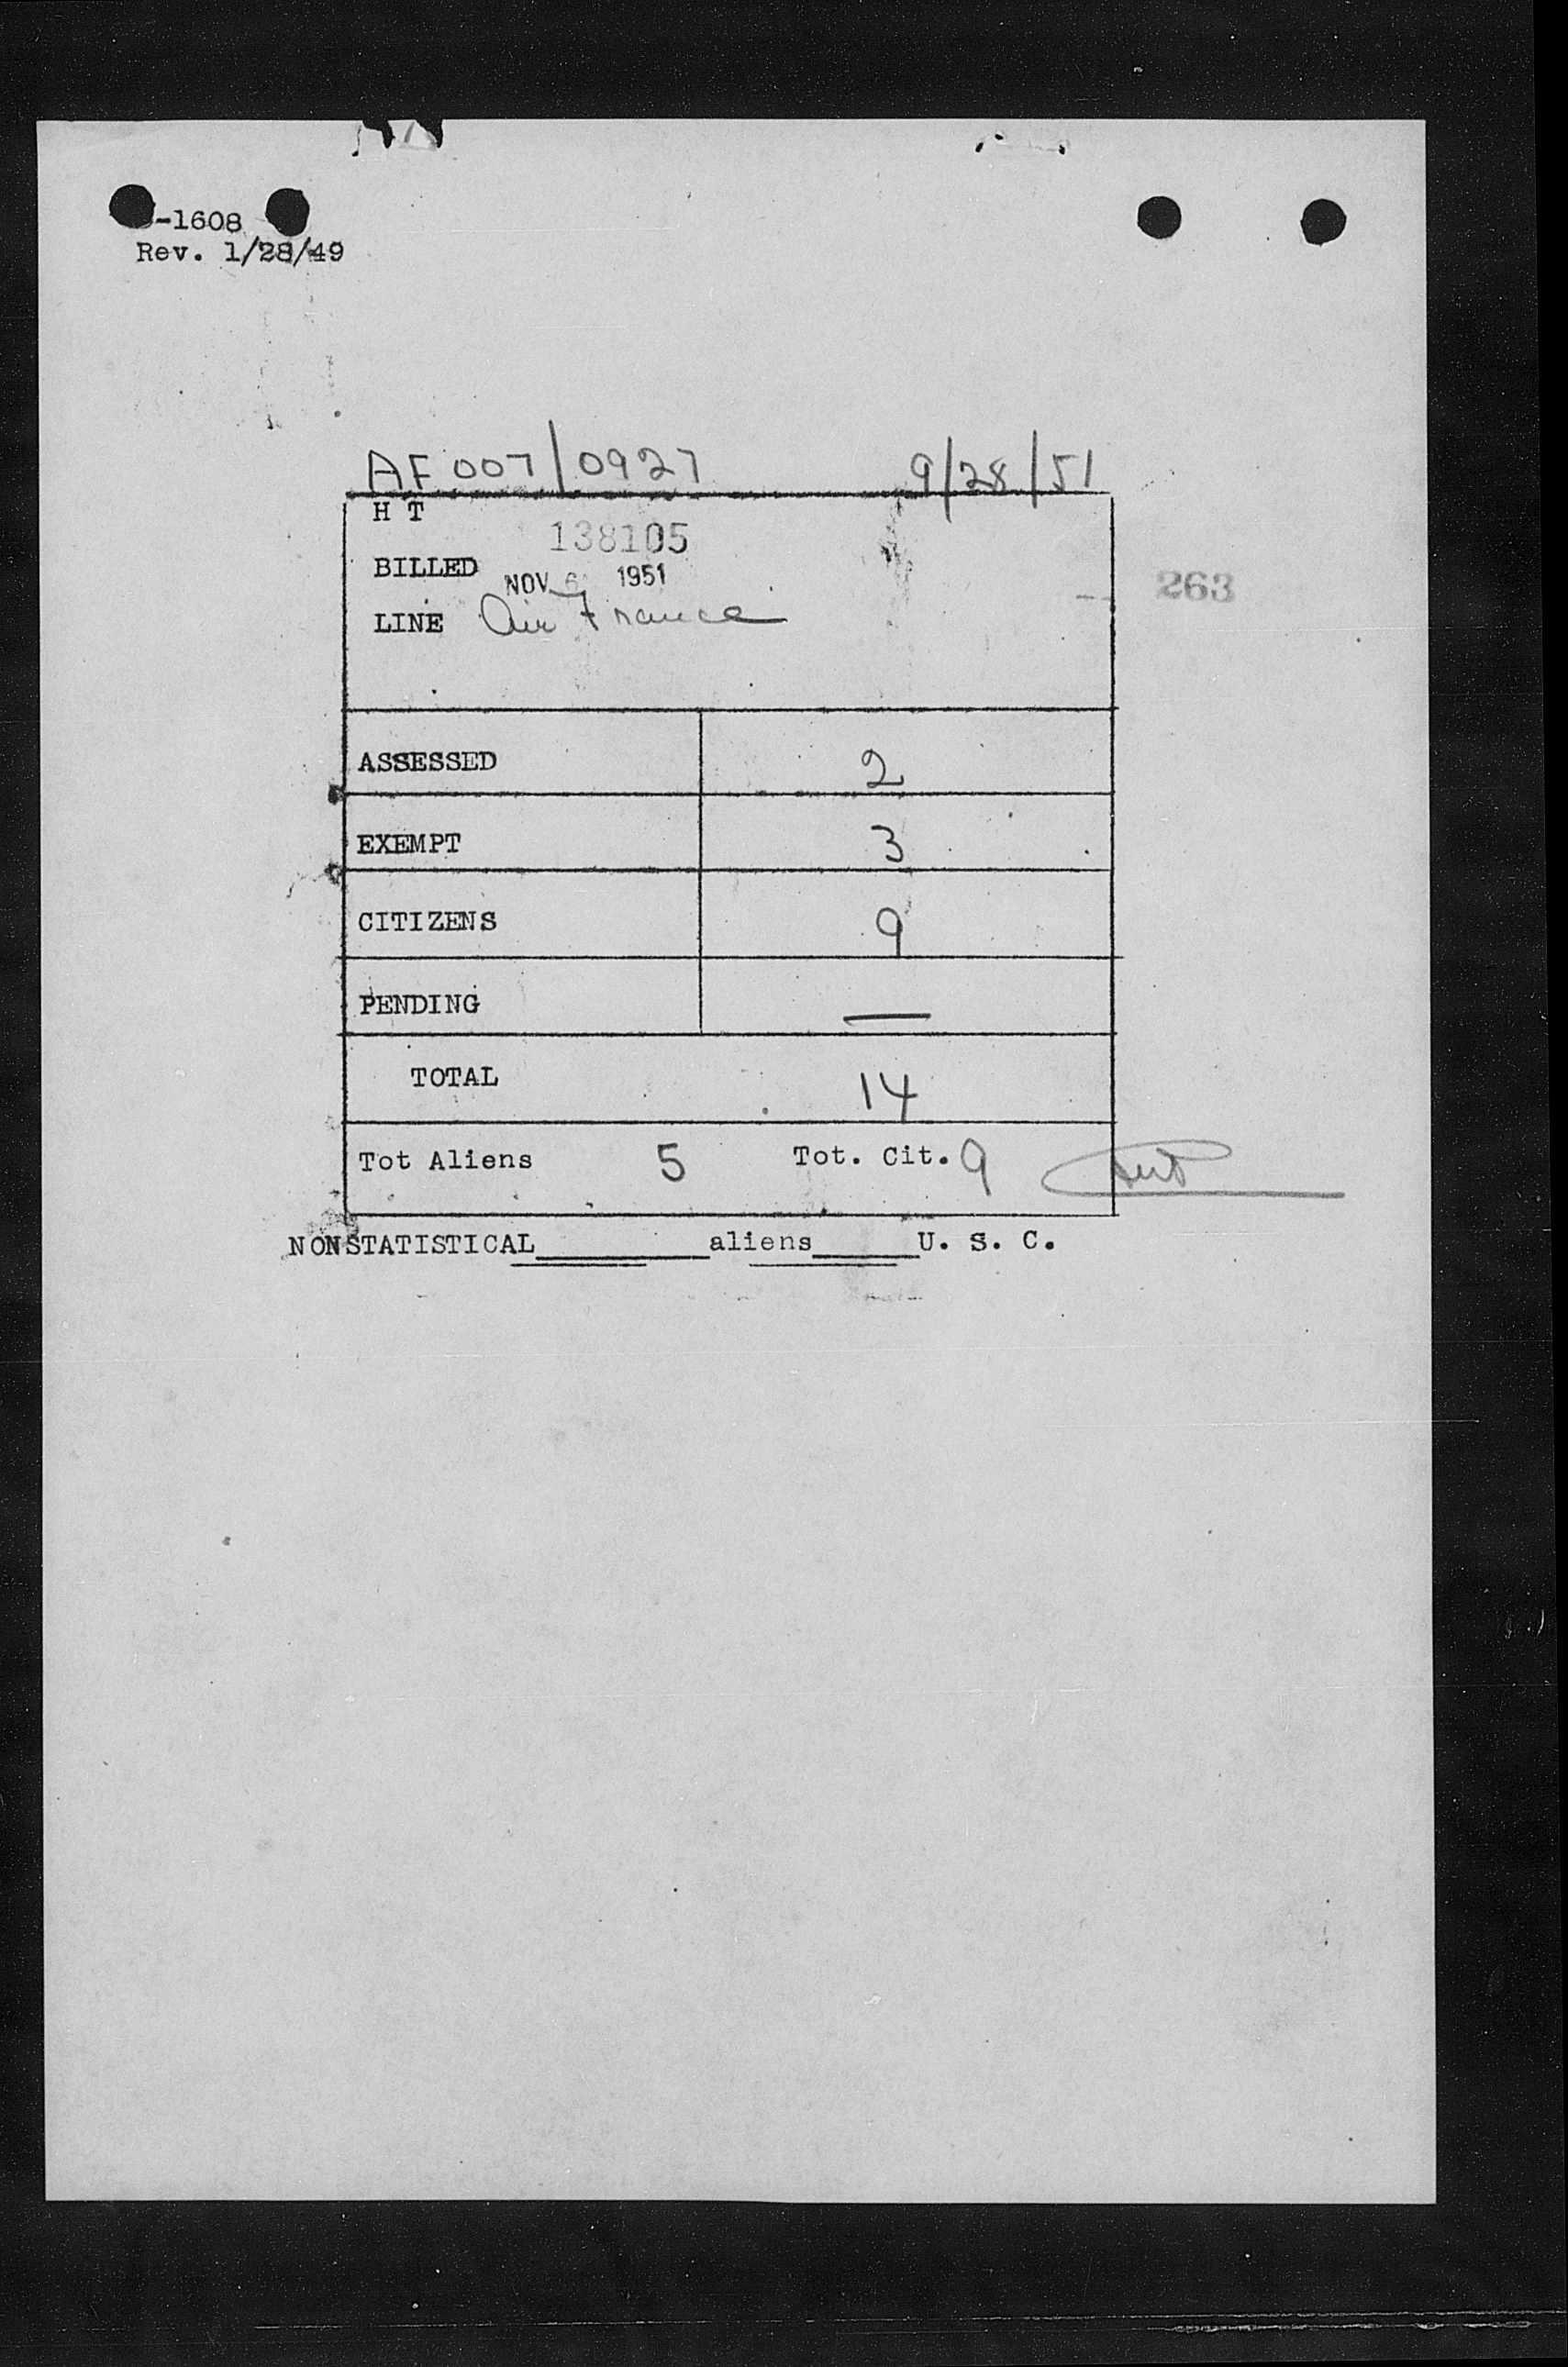 -1608
Rev. 1/28/49
AF 007/0927 9/28/51
H T
138105
BILLED NOV 6 1951
263
LINE Air France
ASSESSED 2
EXEMPT 3
CITIZENS 9
PENDING —
TOTAL 14
Tot Aliens 5 Tot. Cit. 9
NONSTATISTICAL______aliens______U. S. C.